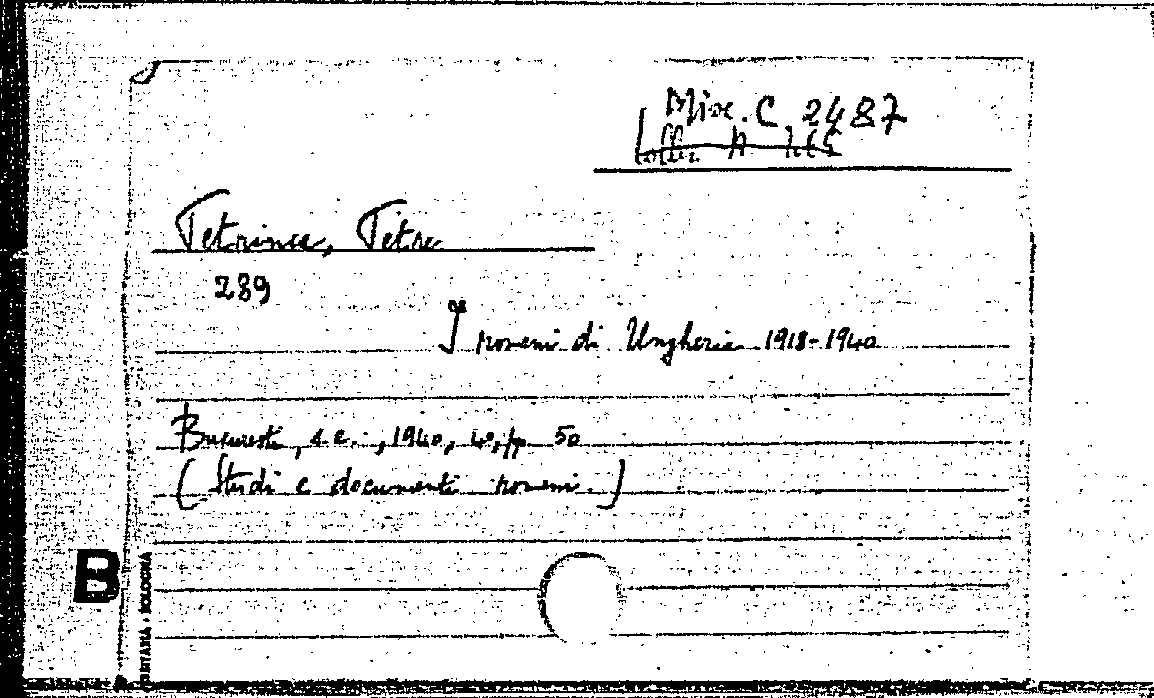 Misc. C 2487
Petrinca, Petre
289
I romeni di Ungheria 1918-1940
Bucuresti, s.e., 1940, 4o, pp. 50
(Studi e documenti romeni.)
B
BOLOGNA